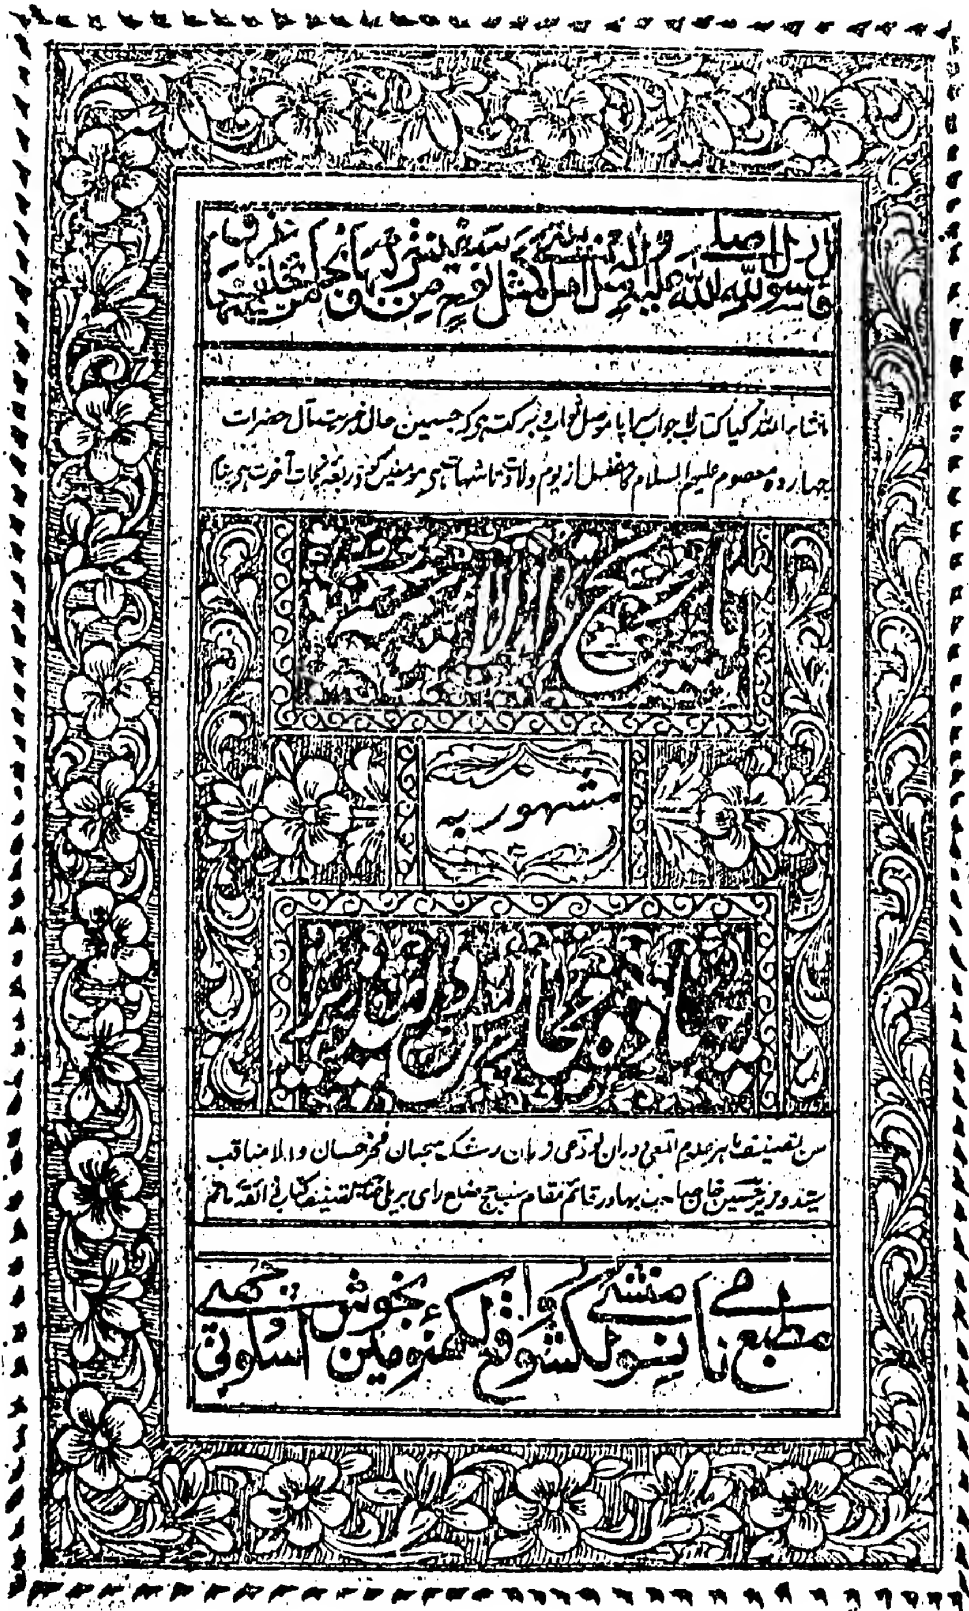 قال رسول الله صلی الله علیه وآله مثل اهل بیتی مثل سفینة نوح من رکبها نجی ومن تخلف عنها غرق
انشاء الله کیا کتاب لاجواب سراپا موصل ثواب و برکت ہی کہ جسمین حال خیریت مآل حضرات
چہاردہ معصوم علیہم السلام کا مفصل از یوم ولادت تا شہادت ہی مومنین کو ذریعہ نجات آخرت ہی
تاریخ الائمہ
مشہور بہ
من تصنیف ماہر علوم المعی دوران لوذعی زمان رشک سحبان فخر حسان والا مناقب
سید وزیر حسین خان صاحب بہادر قائم مقام جج ضلع رای بریلی
مطبع نامی منشی نولکشور واقع لکھنؤ مین بخوش اسلوبی چھپی